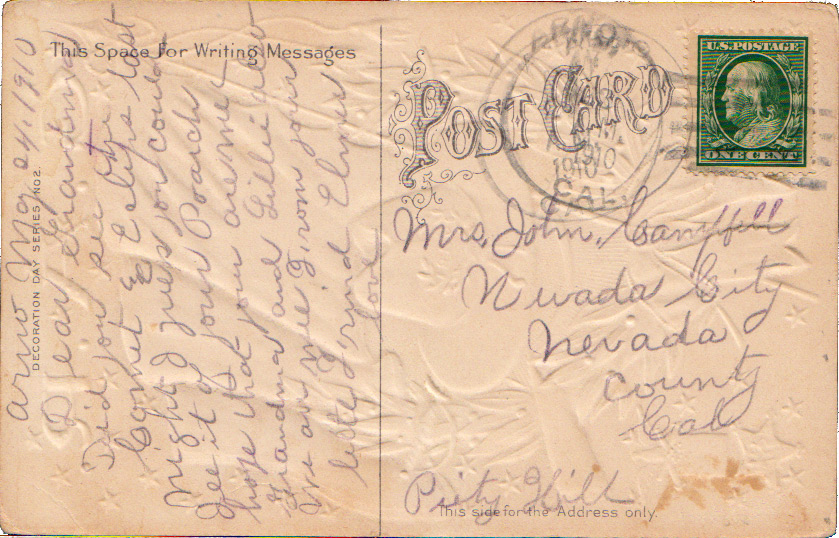 This Space For Writing Messages
Arno May 24, 1910
Dear Grandma
Did you see the
Comet & Eclips last
night I gues you could
See it of your Poarch
hope that your are well
Grandma and Lillie also
We are well From your
little Frind Elmer
love
DECORATION DAY SERIES NO2.
POST CARD
ARNO
1910
CAL.
U.S. POSTAGE
ONE CENT
Mrs, John,
Nevada City
Nevada
County
Cal
Piety Hill
This side for the Address only.